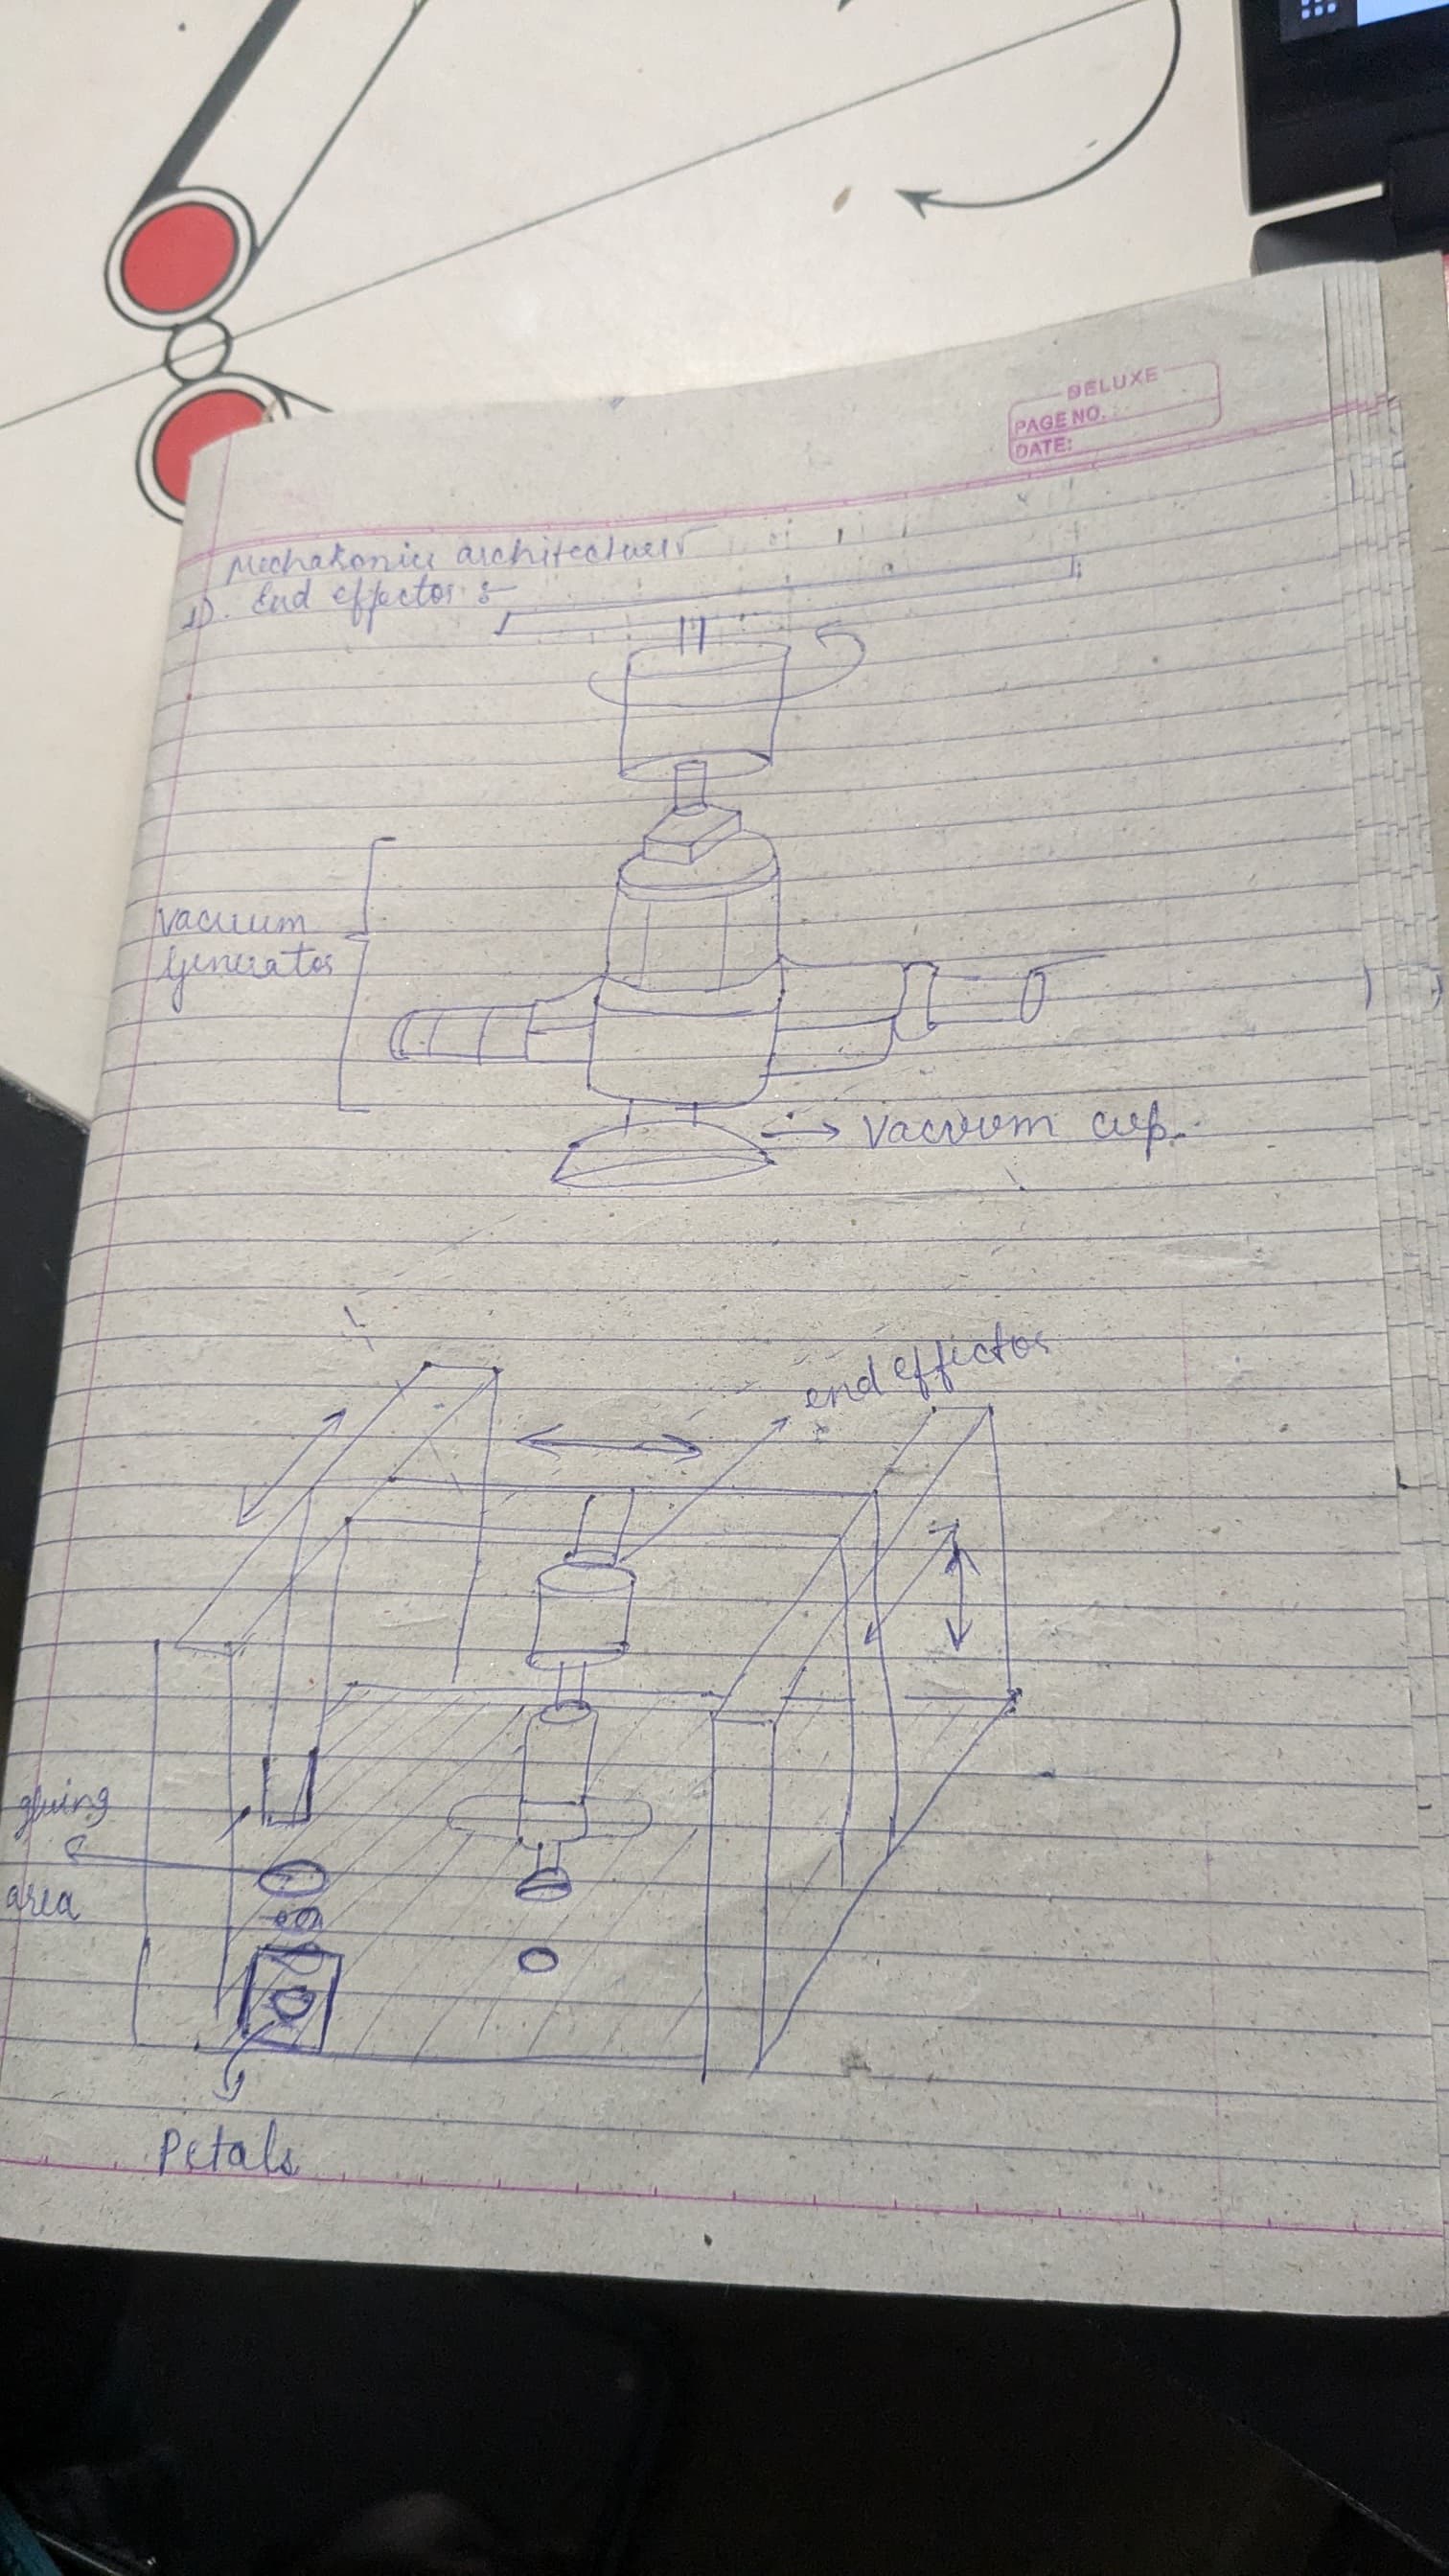 DELUXE
PAGE NO.
DATE:
Mechatronics architecture
1). End effector :-
Vacuum
Generator
Vacuum cup.
end effector
gluing
area
Petals